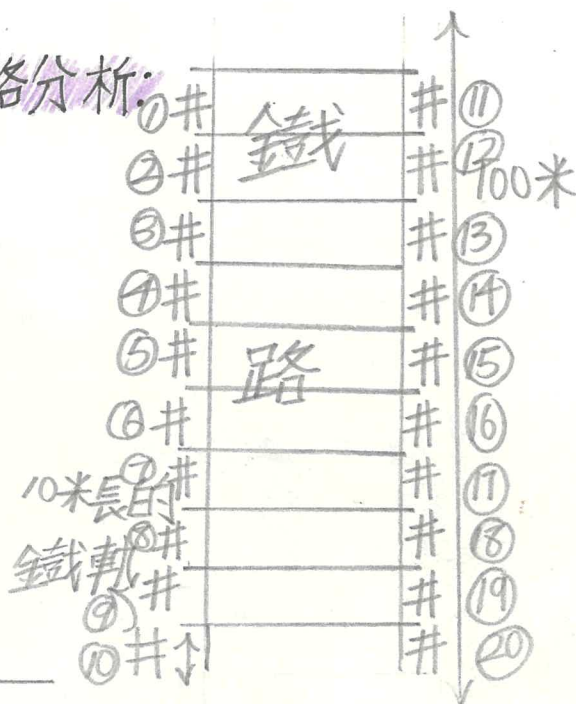 路分析:
① 井 井 ⑪
鐵
② 井 井 ⑫
100米
③ 井 井 ⑬
④ 井 井 ⑭
⑤ 井 井 ⑮
路
⑥ 井 井 ⑯
⑦ 井 井 ⑰
10米長的
⑧ 井 井 ⑱
鐵軌
⑨ 井 井 ⑲
⑩ 井 井 ⑳